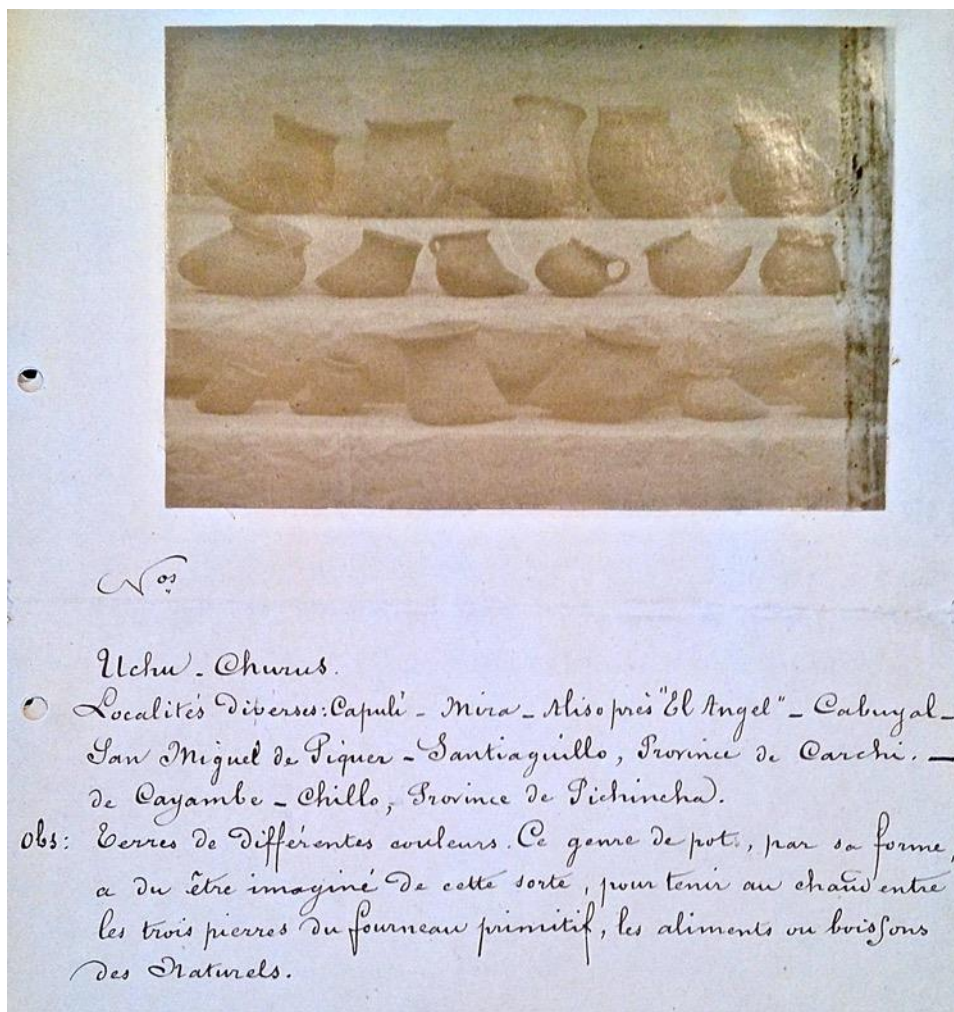 Nos
Uchu - Churus.
Localités diverses: Capulí - Mira - Aliso près "El Angel" - Cabuyal -
San Miguel de Piquer - Santiaguillo, Province de Carchi. —
de Cayambe - Chillo, Province de Pichincha.
Obs: Terres de différentes couleurs. Ce genre de pot, par sa forme,
a du être imaginé de cette sorte, pour tenir au chaud entre
les trois pierres du fourneau primitif, les aliments ou boissons
des Naturels.